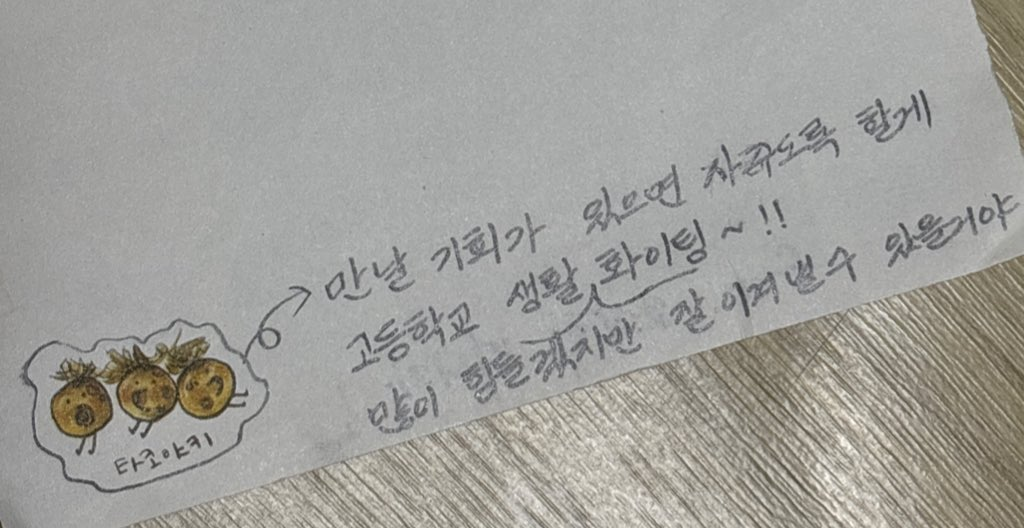 만날 기회가 있으면 자꾸도록 할게
고등학교 생활 화이팅~!!
많이 힘들겠지만 잘 이겨낼 수 있을거야
타코야키